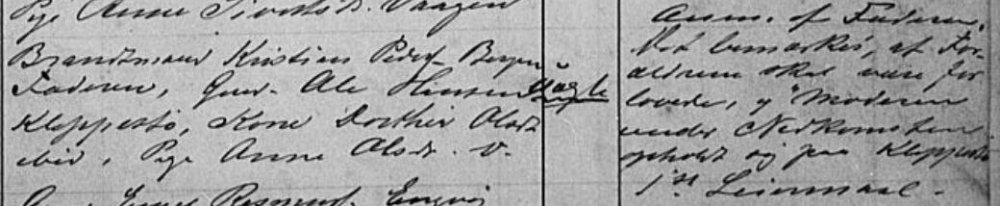 Pige Anne Sivertsdr. Vaagen
Brandtmand Kristian Peders. Bergen
Faderen, Gmd. Ole Hansen
Kleppestø, Kone Dorthea Olsdr
ibid, Pige Anne Olsdr. v.
Enevig
uægte
Anm. af Faderen.
Det bemærkes, at For-
ældrene skal være for
lovede, og Moderen
under Nedkomsten
opholdt sig paa Kleppestø
1ste Leiermaal.